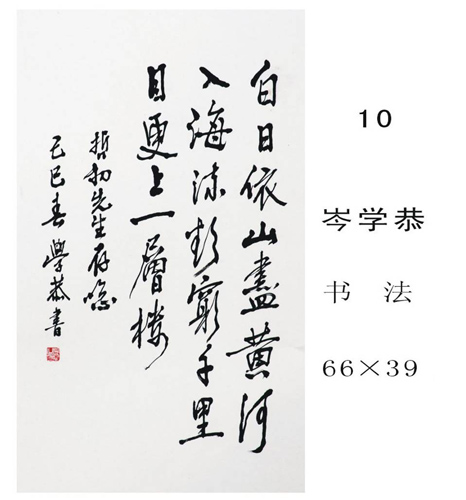 白日依山盡黄河
入海流欲窮千里
目更上一層楼
哲初先生存念
己巳春 學恭書
10
岑学恭
书 法
66×39